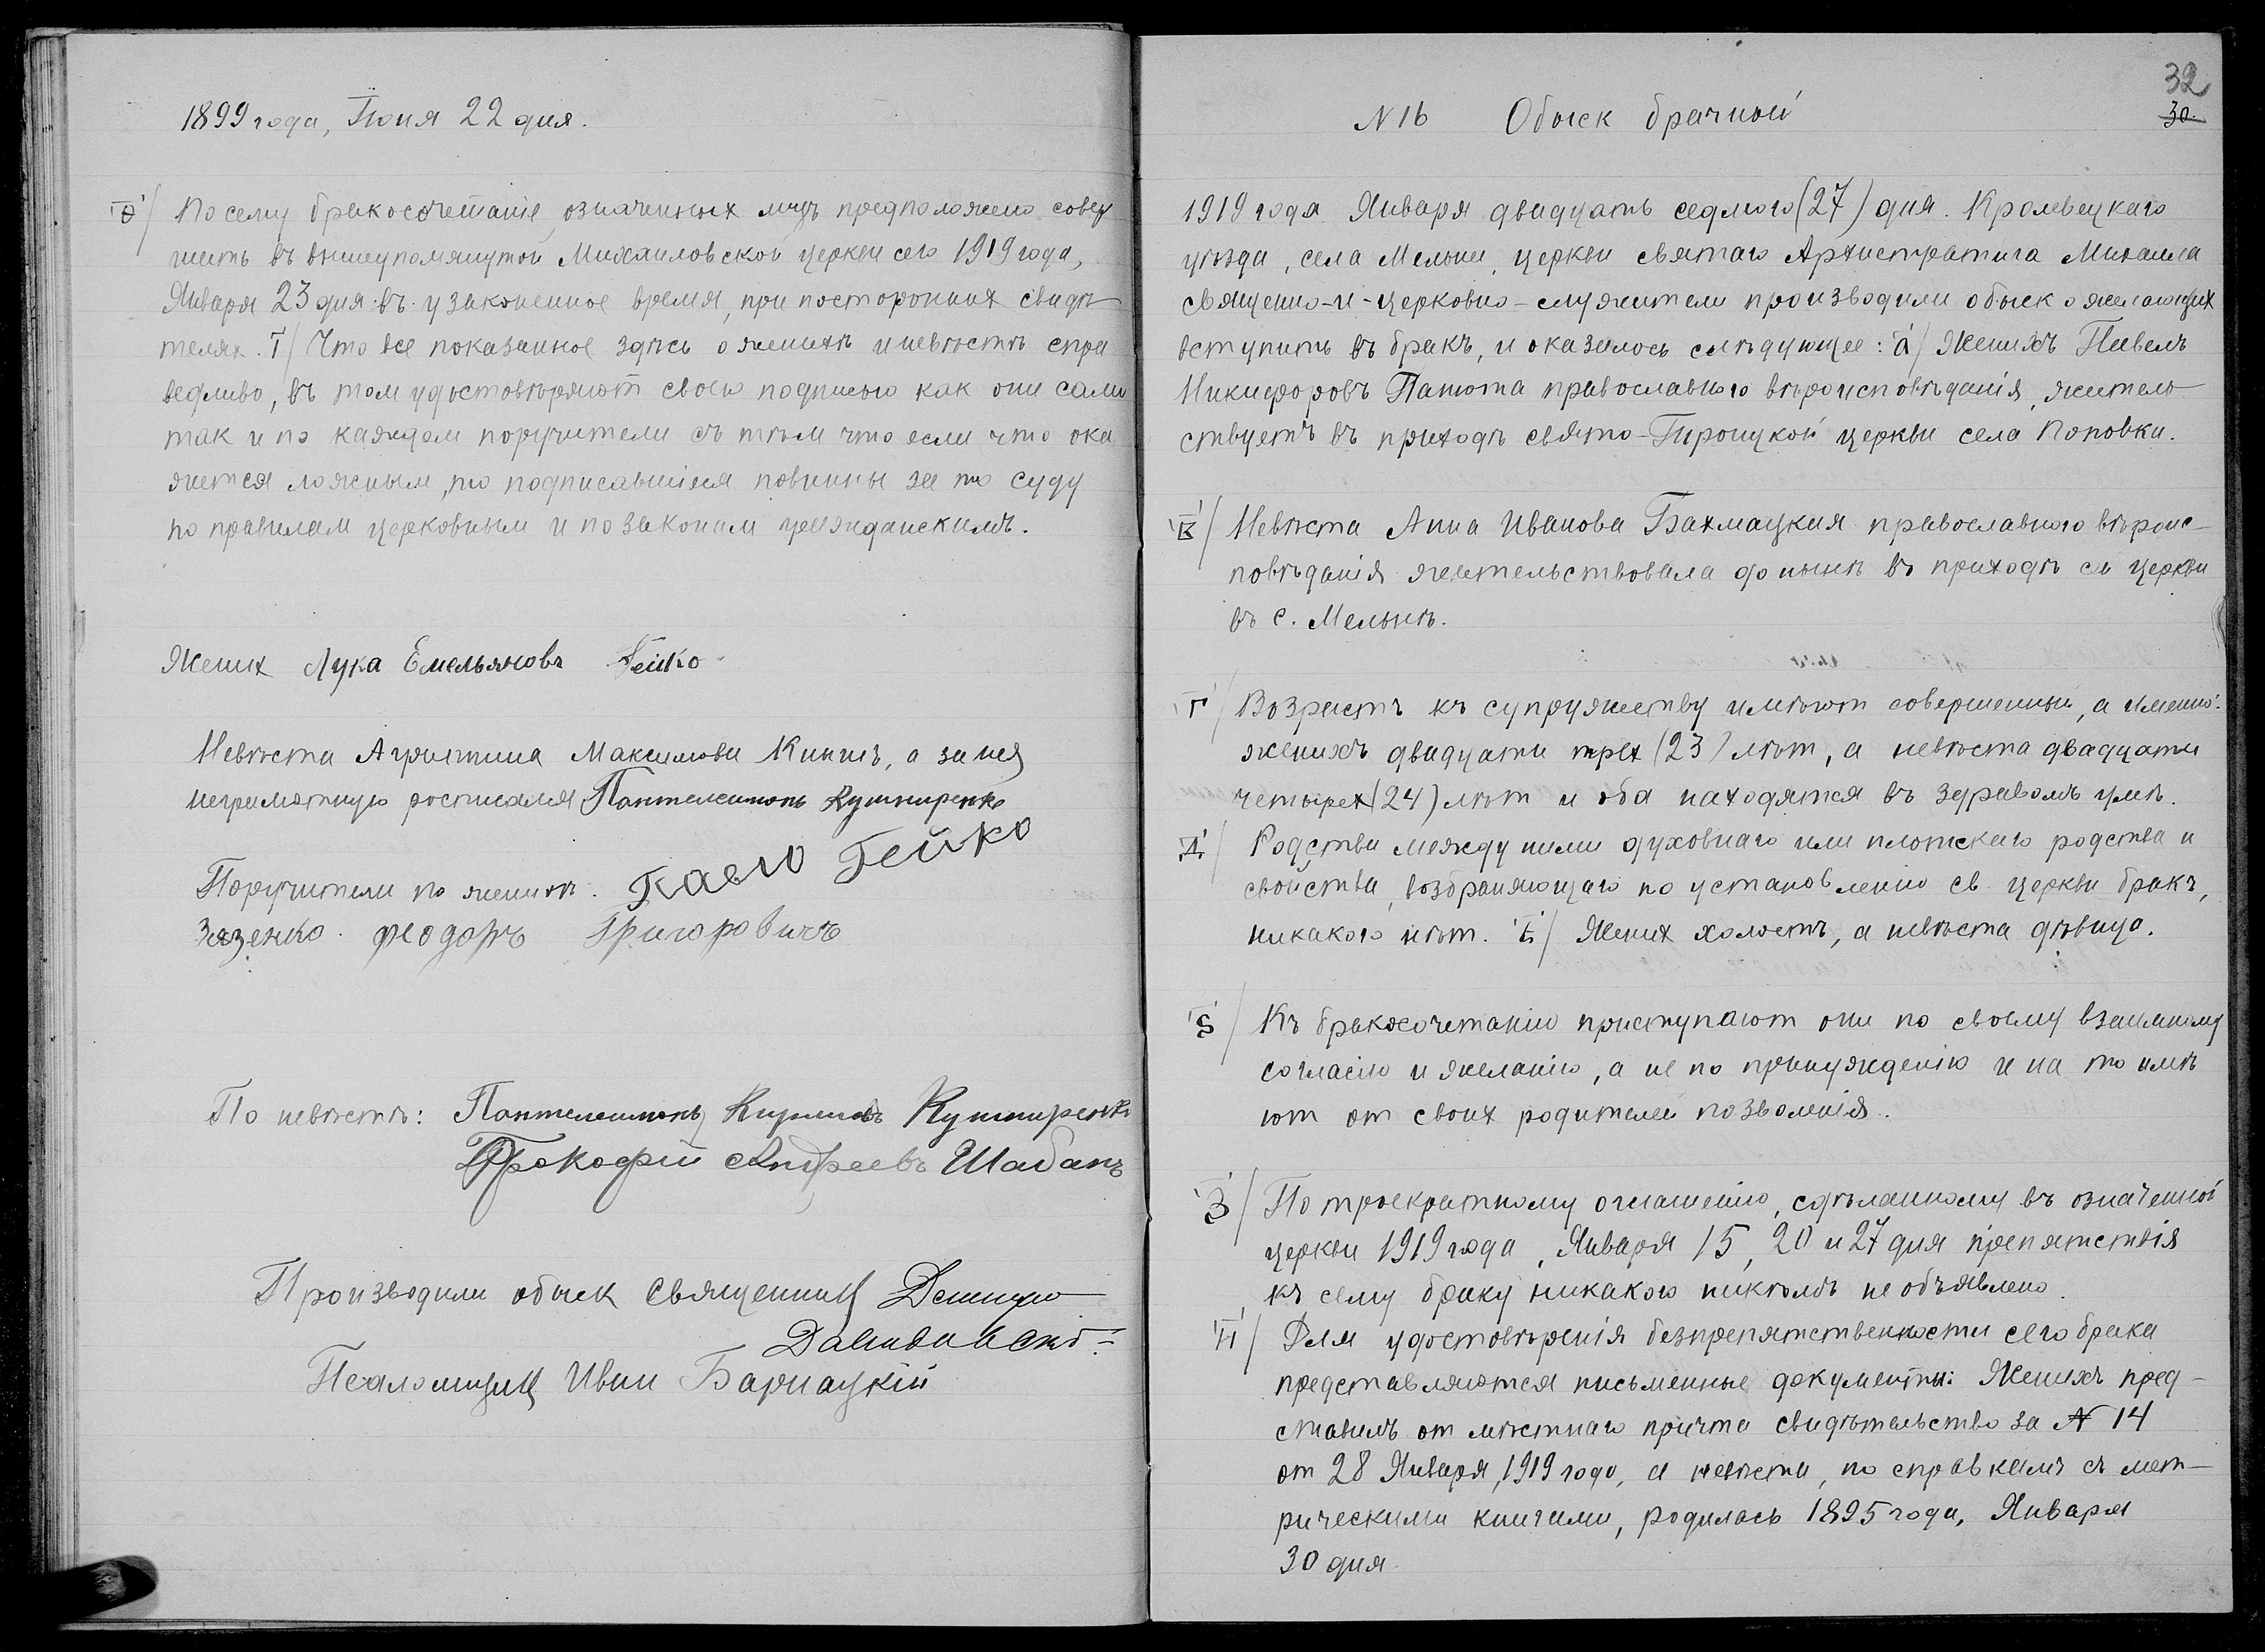 1899 года, Іюня 22 дня.
Ѳ/ Посему бракосочетаніе означенных лицъ предположено совер
шить въ вышеупомянутой Михаиловской церкви сего 1919 года,
Января 23 дня въ узаконенное время, при посторонних свидѣ
телях. І/ Что все показанное здѣсь о женихѣ и невѣстѣ спра
ведливо, въ том удостовѣряют своею подписью как они сами
так и по каждом поручители съ тѣм что если что ока
жется ложным, то подписавшіеся повинны за то суду
по правилам церковным и по законам гражданскимъ.
Жених Лука Емельяновъ Гейко
Невѣста Агриппина Максимова , а за нея
неграмотную росписался Пантелеимонъ Кушниренко
Поручители по женихѣ. Гейко
Зязенко Феодоръ Григоровичъ
По невѣстѣ: Пантелеимонъ Кириловъ Кушниренко
Прокофій Андреевъ Шабанъ
Производили обыск Священник
Псаломщик Иван Барнацкій
32
30.
N 16 Обыск брачный
1919 года Января двадцать седмого (27) дня. Кролевецкаго
уѣзда, села Мельни, церкви святаго Архистратига Михаила
священно-и-церковно-служители производили обыск о желающих
вступить въ бракъ, и оказалось слѣдующее: а/ Женихъ Павелъ
Никифоровъ Папота православного вѣроисповѣданія, житель
ствуетъ въ приходѣ свято-Троицкой церкви села Поповки.
В/ Невѣста Анна Иванова Бахмацкая православного вѣроис-
повѣданія жительствовала до нынѣ въ приходѣ сей церкви
въ с. Мельнѣ.
Г/ Возрастъ къ супружеству имѣют совершенный, а именно:
женихъ двадцати трех (23) лѣт, а невѣста двадцати
четырех (24) лѣт и оба находятся въ здравомъ умѣ.
Д/ Родства между ними духовнаго или плотскаго родства и
свойства, возбраняющаго по установленію св. церкви бракъ,
никакого нѣт. Е/ Жених холостъ, а невѣста дѣвица.
Ѕ/ Къ бракосочетанію приступают они по своему взаимному
согласію и желанію, а не по принужденію и на то имѣ
ют от своих родителей позволенія.
З/ По троекратному оглашенію, сдѣланному въ означенной
церкви 1919 года, Января 15, 20 и 27 дня препятствія
къ сему браку никакого никѣмъ не объявлено.
И/ Для удостовѣренія безпрепятственности сего брака
представляются письменные документы: Женихъ пред-
ставилъ от мѣстнаго причта свидѣтельство за N 14
от 28 Января, 1919 года, а невѣста, по справкамъ съ мет-
рическими книгами, родилась 1895 года, Января
30 дня.